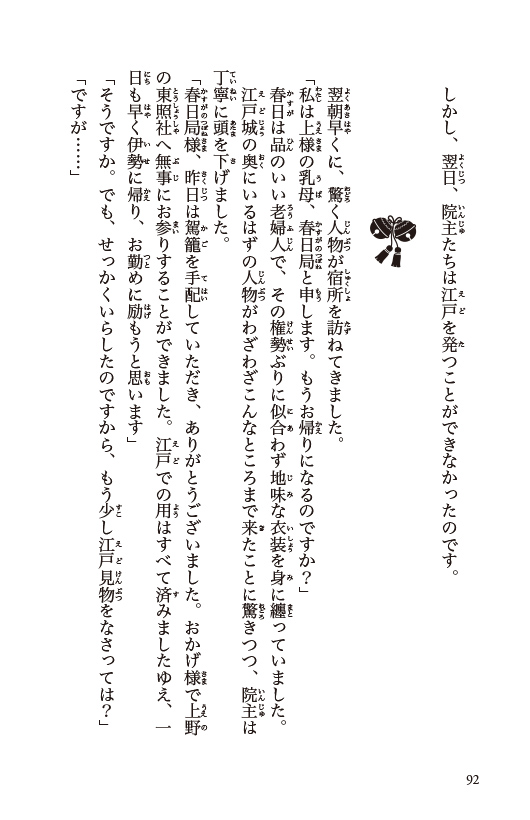 しかし、翌日、院主たちは江戸を発つことができなかったのです。
翌朝早くに、驚く人物が宿所を訪ねてきました。
「私は上様の乳母、春日局と申します。もうお帰りになるのですか？」
春日は品のいい老婦人で、その権勢ぶりに似合わず地味な衣装を身に纏っていました。
江戸城の奥にいるはずの人物がわざわざこんなところまで来たことに驚きつつ、院主は
丁寧に頭を下げました。
「春日局様、昨日は駕籠を手配していただき、ありがとうございました。おかげ様で上野
の東照社へ無事にお参りすることができました。江戸での用はすべて済みましたゆえ、一
日も早く伊勢に帰り、お勤めに励もうと思います」
「そうですか。でも、せっかくいらしたのですから、もう少し江戸見物をなさっては？」
「ですが……」
92